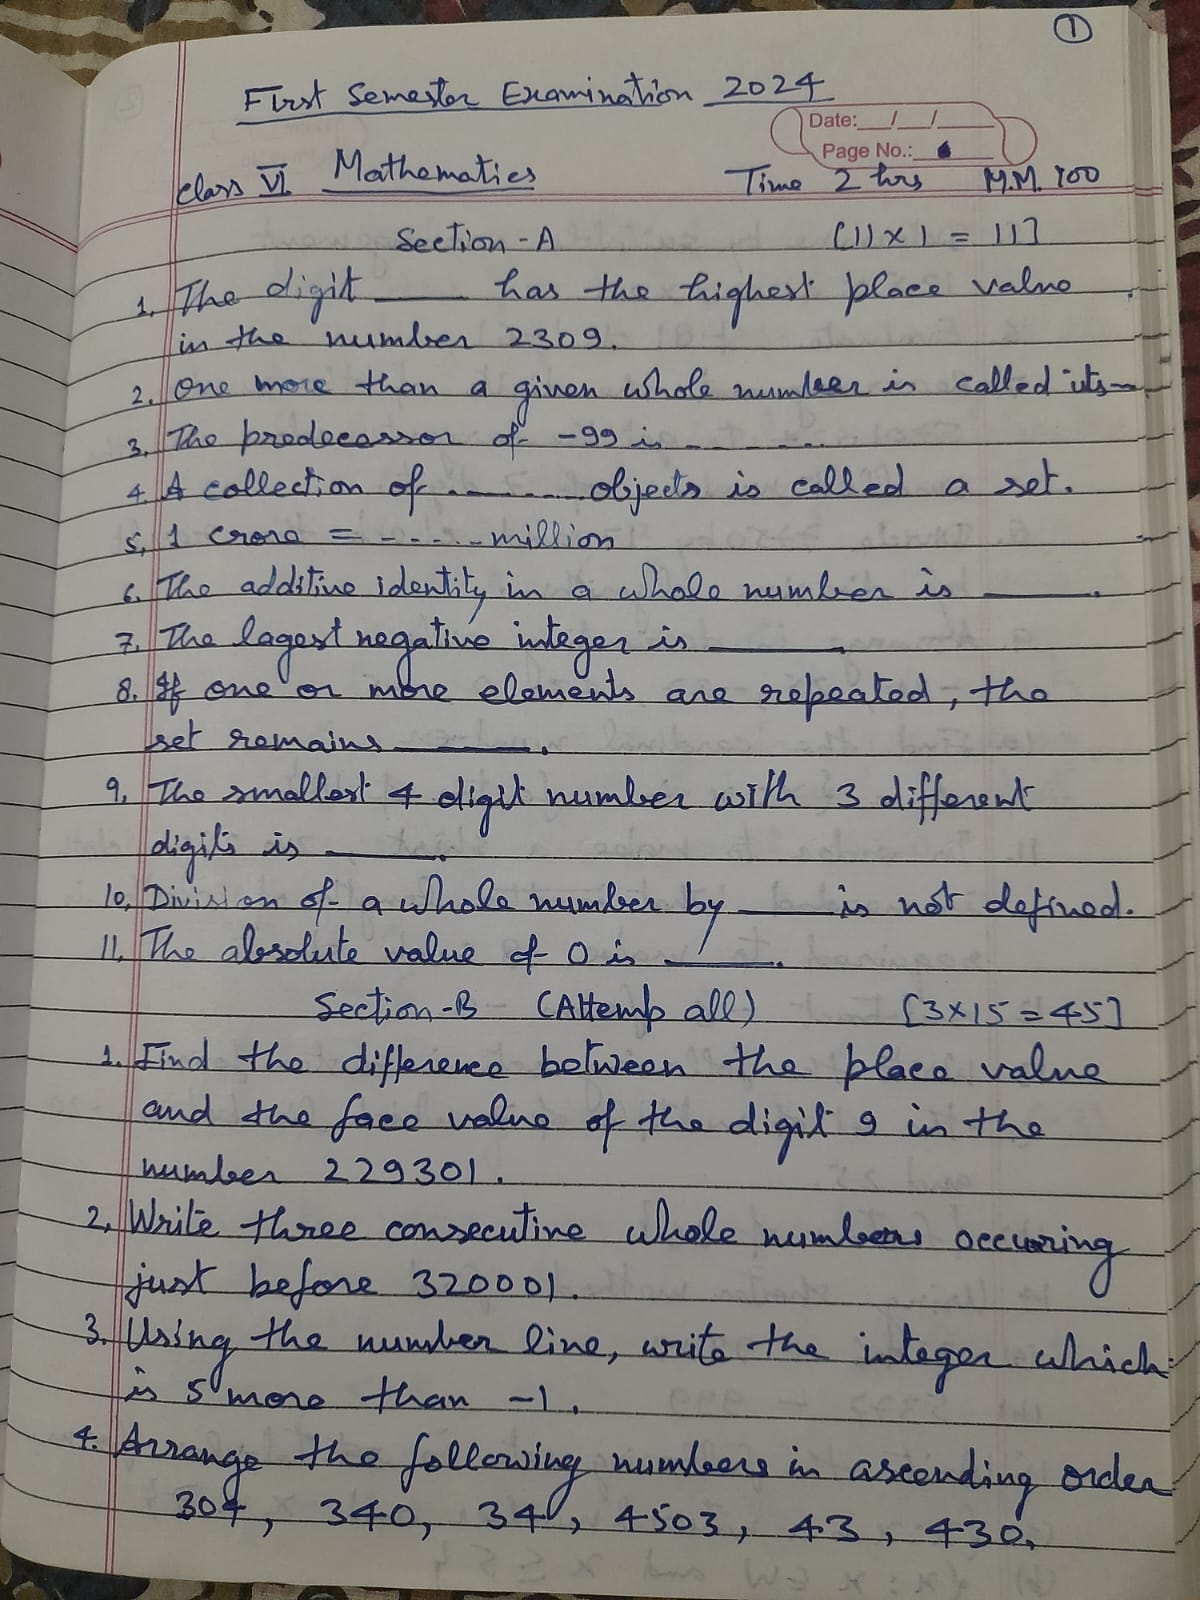 1
First Semester Examination 2024
Date: __/__/____
Page No.:
Class VI Mathematics Time 2 hrs M.M. 100
Section-A [11 x 1 = 11]
1. The digit ____ has the highest place value
in the number 2309.
2. One more than a given whole number is called its—
3. The predecessor of -99 is ------.
4. A collection of ------- objects is called a set.
5. 1 crore = ------ million
6. The additive identity in a whole number is ____.
7. The lagest negative integer is ____.
8. If one or more elements are repeated, the
set remains ____.
9. The smallest 4 digit number with 3 different
digits is ____.
10. Division of a whole number by ____ is not defined.
11. The absolute value of 0 is ____.
Section-B (Attemp all) [3x15=45]
1. Find the difference between the place value
and the face value of the digit 9 in the
number 229301.
2. Write three consecutive whole numbers occuring
just before 320001.
3. Using the number line, write the integer which
is 5 more than -1.
4. Arrange the following numbers in ascending order
304, 340, 34, 4503, 43, 430.